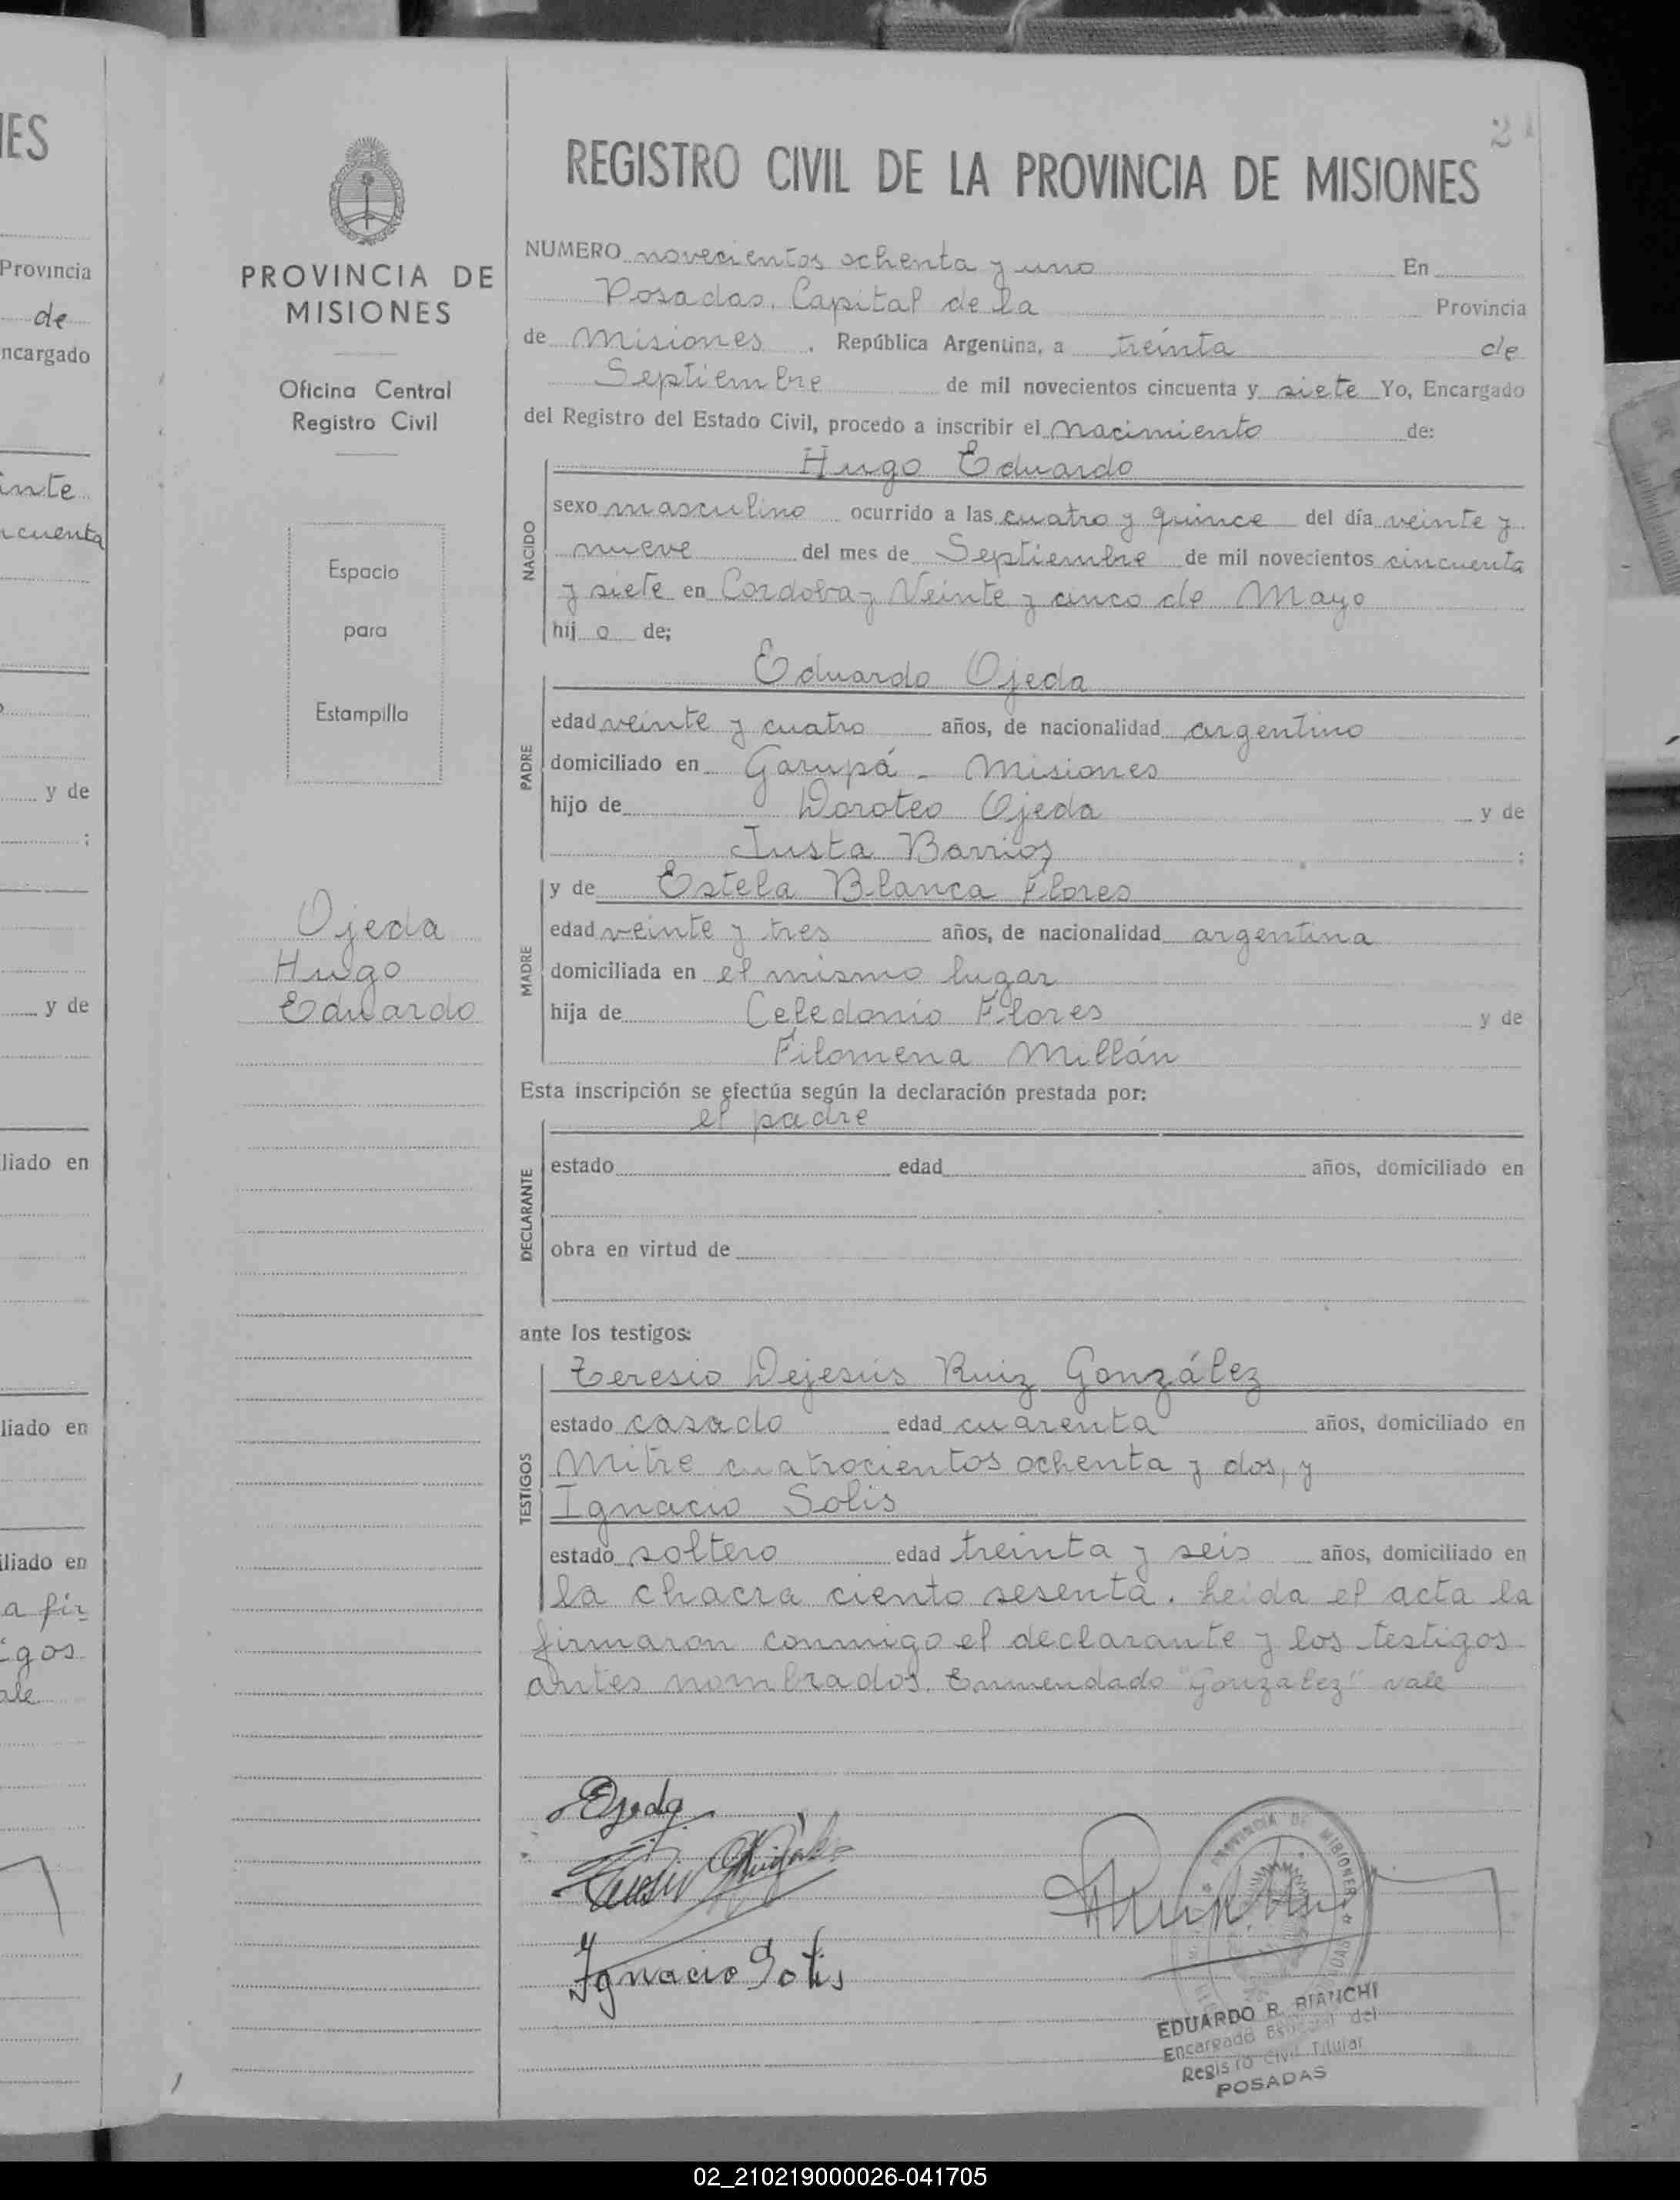 REGISTRO CIVIL DE LA PROVINCIA DE MISIONES
PROVINCIA DE
MISIONES
Oficina Central
Registro Civil
Espacio
para
Estampilla
Ojeda
Hugo
Eduardo
NUMERO novecientos ochenta y uno En
Posadas, Capital de la Provincia
de Misiones, República Argentina, a treinta de
Septiembre de mil novecientos cincuenta y siete Yo, Encargado
del Registro del Estado Civil, procedo a inscribir el nacimiento de:
Hugo Eduardo
NACIDO
sexo masculino ocurrido a las cuatro y quince del día veinte y
nueve del mes de Septiembre de mil novecientos cincuenta
y siete en Cordoba y Veinte y cinco de Mayo
hijo de;
Eduardo Ojeda
PADRE
edad veinte y cuatro años, de nacionalidad argentino
domiciliado en Garupá - Misiones
hijo de Doroteo Ojeda y de
Justa Barrios ;
MADRE
y de Estela Blanca Flores
edad veinte y tres años, de nacionalidad argentina
domiciliada en el mismo lugar
hija de Celedonio Flores y de
Filomena Millán
Esta inscripción se efectúa según la declaración prestada por:
el padre
DECLARANTE
estado edad años, domiciliado en
obra en virtud de
ante los testigos:
TESTIGOS
Teresio Dejesús Ruiz González
estado casado edad cuarenta años, domiciliado en
Mitre cuatrocientos ochenta y dos, y
Ignacio Solis
estado soltero edad treinta y seis años, domiciliado en
la chacra ciento sesenta. Leida el acta la
firmaron conmigo el declarante y los testigos
antes nombrados. Enmendado "Gonzalez" vale
Ojeda
Ignacio Solis
PROVINCIA DE MISIONES
EDUARDO R. BIANCHI
Encargado del
Registro Civil Titular
POSADAS
IES
Provincia
de
ncargado
inte
ncuenta
y de
;
y de
liado en
liado en
iliado en
a fir
igos
ale
02_210219000026-041705